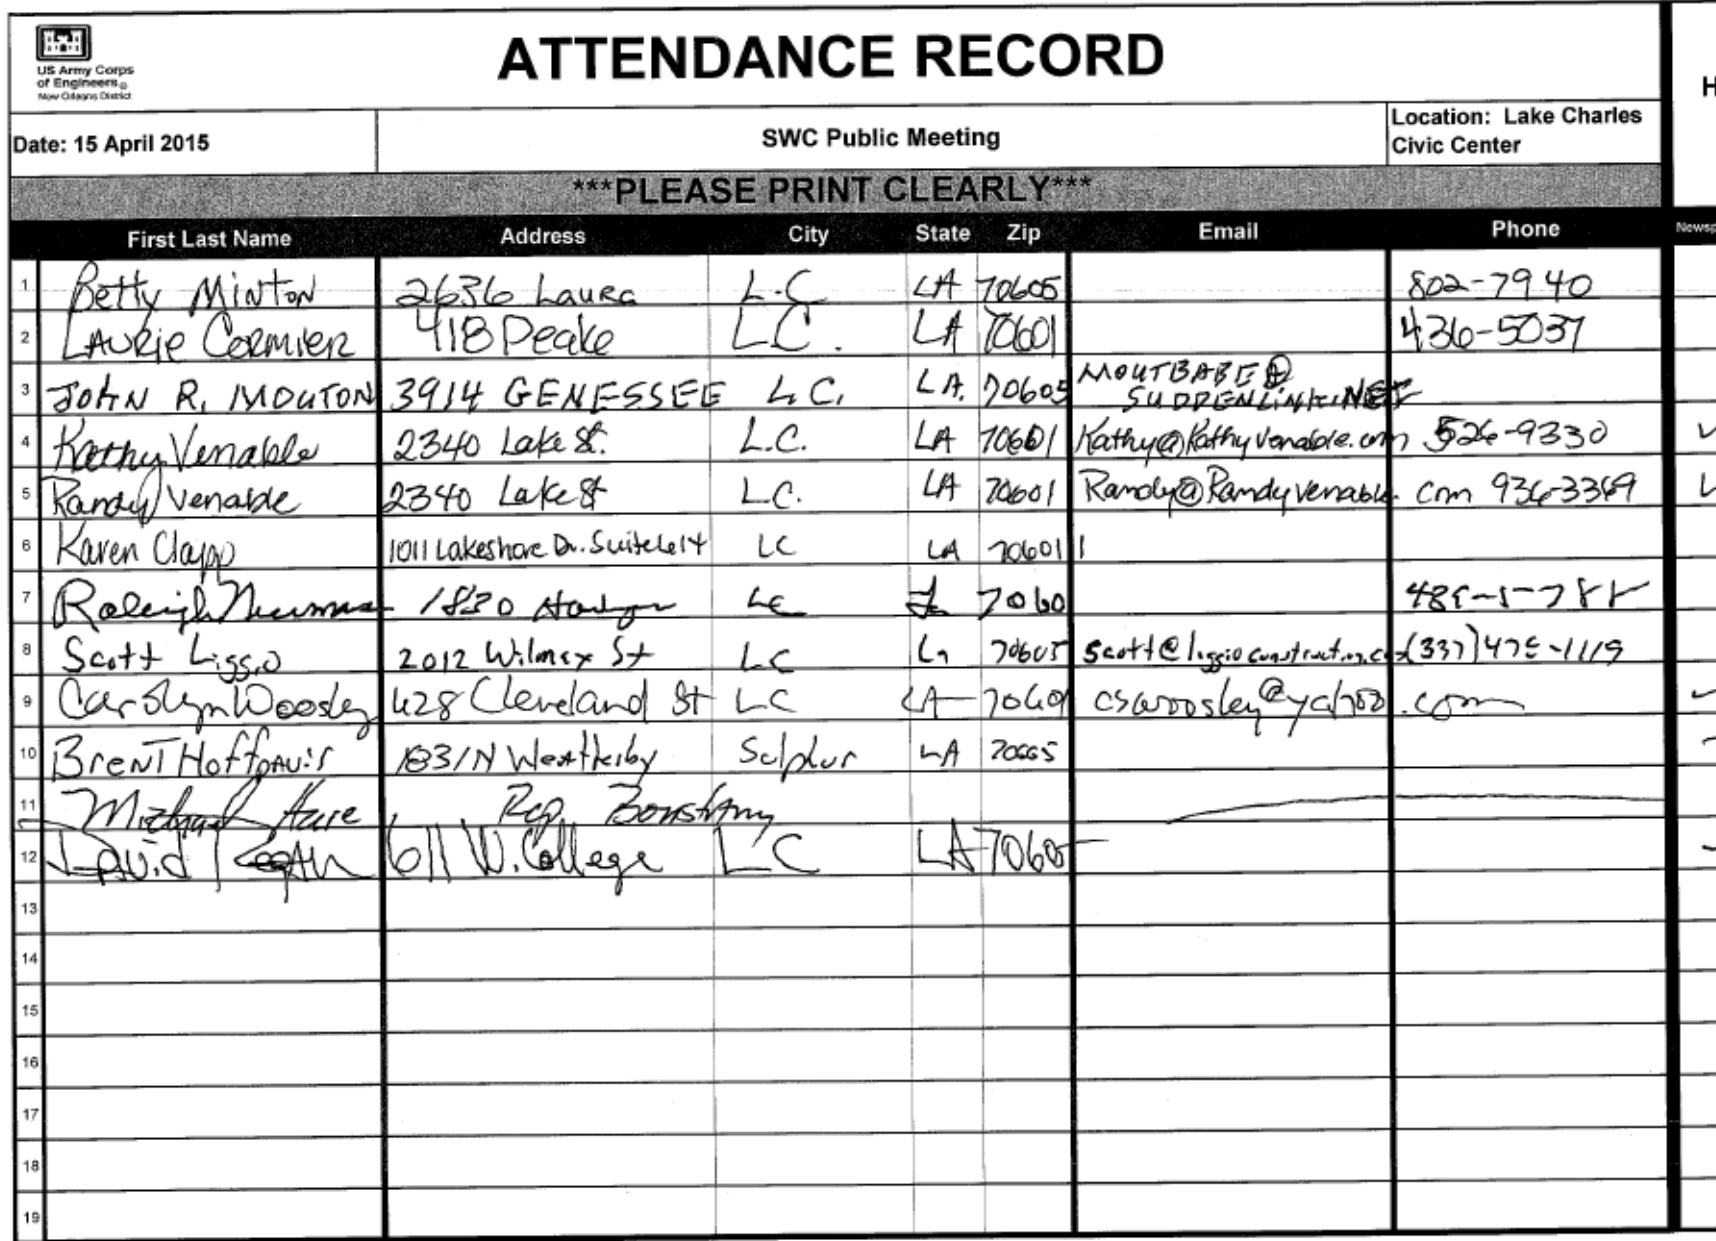 US Army Corps
of Engineers®
New Orleans District
ATTENDANCE RECORD
H
Date: 15 April 2015 SWC Public Meeting Location: Lake Charles
Civic Center
***PLEASE PRINT CLEARLY***
First Last Name Address City State Zip Email Phone Newsp
1 Betty Minton 2636 Laura L.C LA 70605 802-7940
2 LAURIE CORMIER 418 Peake L.C. LA 70601 436-5037
3 JOHN R. MOUTON 3914 GENESSEE L.C. LA. 70605 MOUTBABE@
SUDDENLINK.NET
4 Kathy Venable 2340 Lake St. L.C. LA 70601 Kathy@Kathyvenable.com 526-9330
5 Randy Venable 2340 Lake St L.C. LA 70601 Randy@Randyvenable.com 936-3369
6 Karen Clapp 1011 Lakeshore Dr. Suite 614 LC LA 70601
7 Raleigh Newman 1830 LC 7060
8 Scott Liggio 2012 Wilmax St LC La 70605 scott@liggioconstruction.com (337) 475-1119
9 Carolyn Woosley 428 Cleveland St LC LA cswoosley@yahoo.com
10 Brent Hoffpauir 1831 N Weatherby Sulphur LA 70665
11 Michael Hare Rep Boustany
12 David 611 W. College LC LA 70605
13
14
15
16
17
18
19